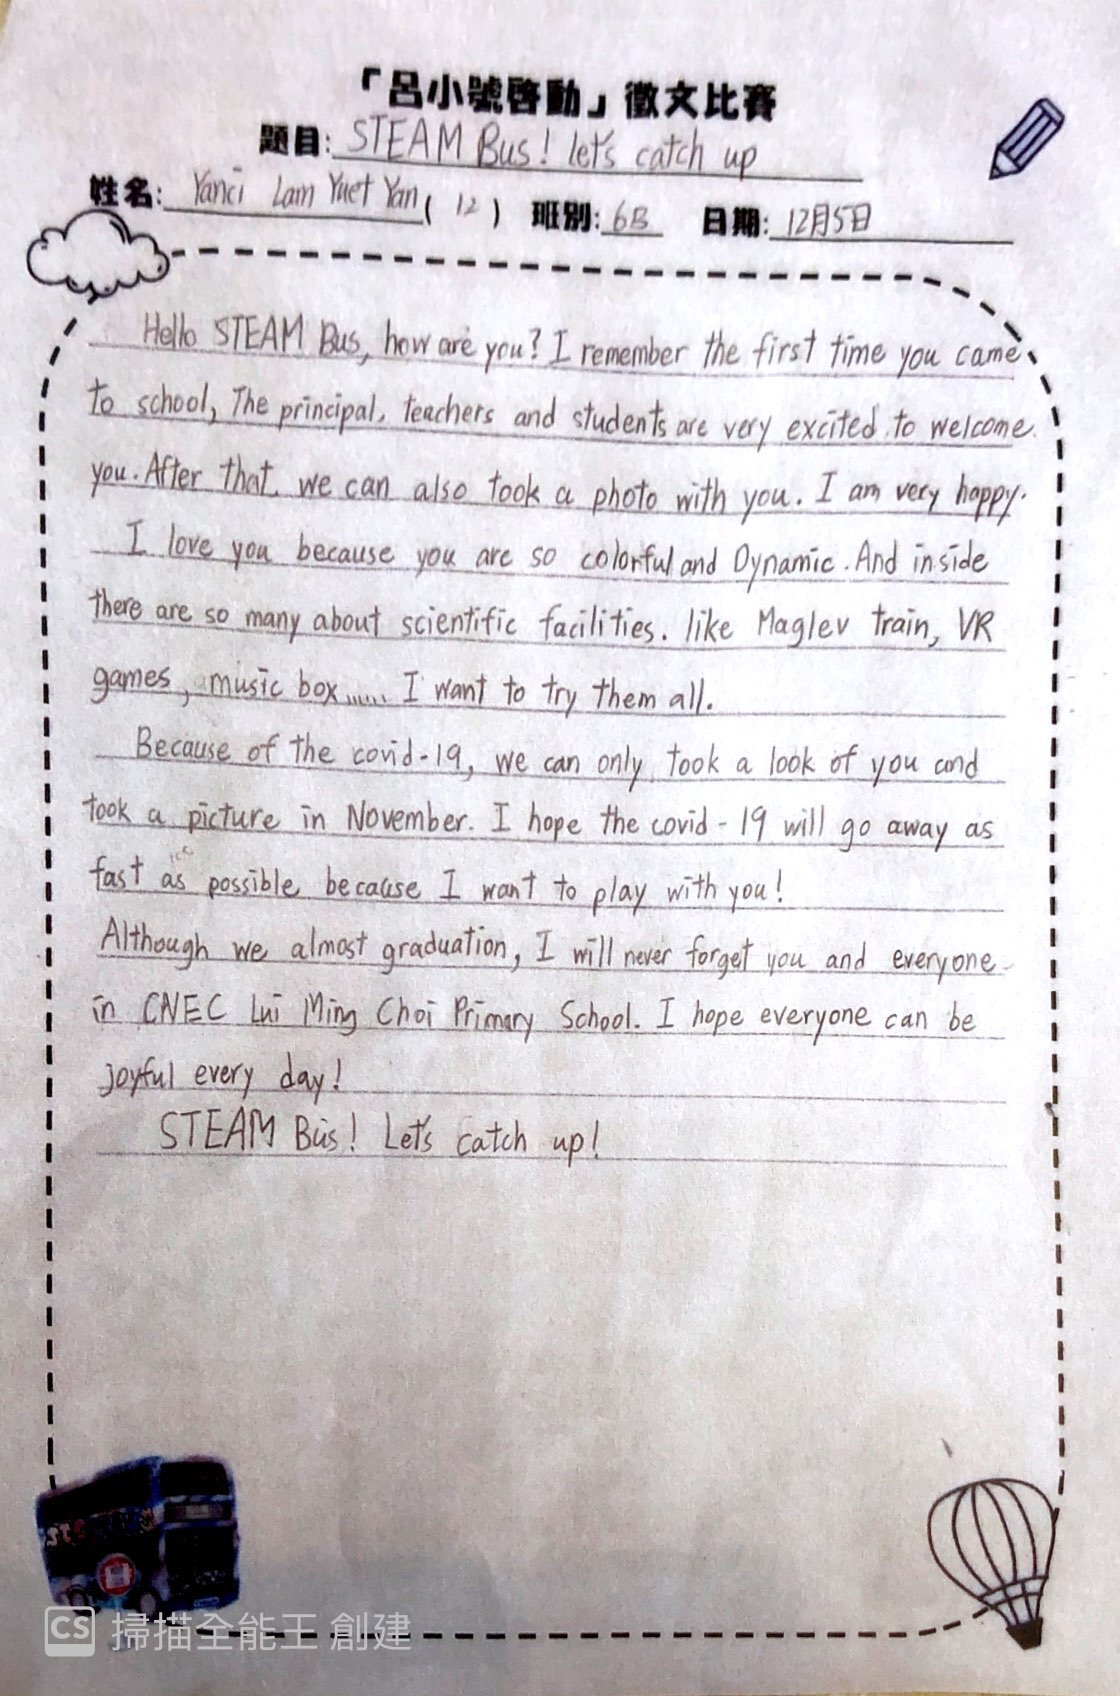 「呂小號啓動」徵文比賽
題目: STEAM Bus! let's catch up
姓名: Yanci Lam Yuet Yan ( 12 ) 班別: 6B 日期: 12月5日
Hello STEAM Bus, how are you? I remember the first time you came
to school, The principal, teachers and students are very excited to welcome
you. After that, we can also took a photo with you. I am very happy.
I love you because you are so colorful and Dynamic. And inside
there are so many about scientific facilities. like Maglev train, VR
games, music box...... I want to try them all.
Because of the covid-19, we can only took a look of you and
took a picture in November. I hope the covid-19 will go away as
fast as possible because I want to play with you!
Although we almost graduation, I will never forget you and everyone
in CNEC Lui Ming Choi Primary School. I hope everyone can be
joyful every day!
STEAM Bus! Let's catch up!
CS 掃描全能王 創建